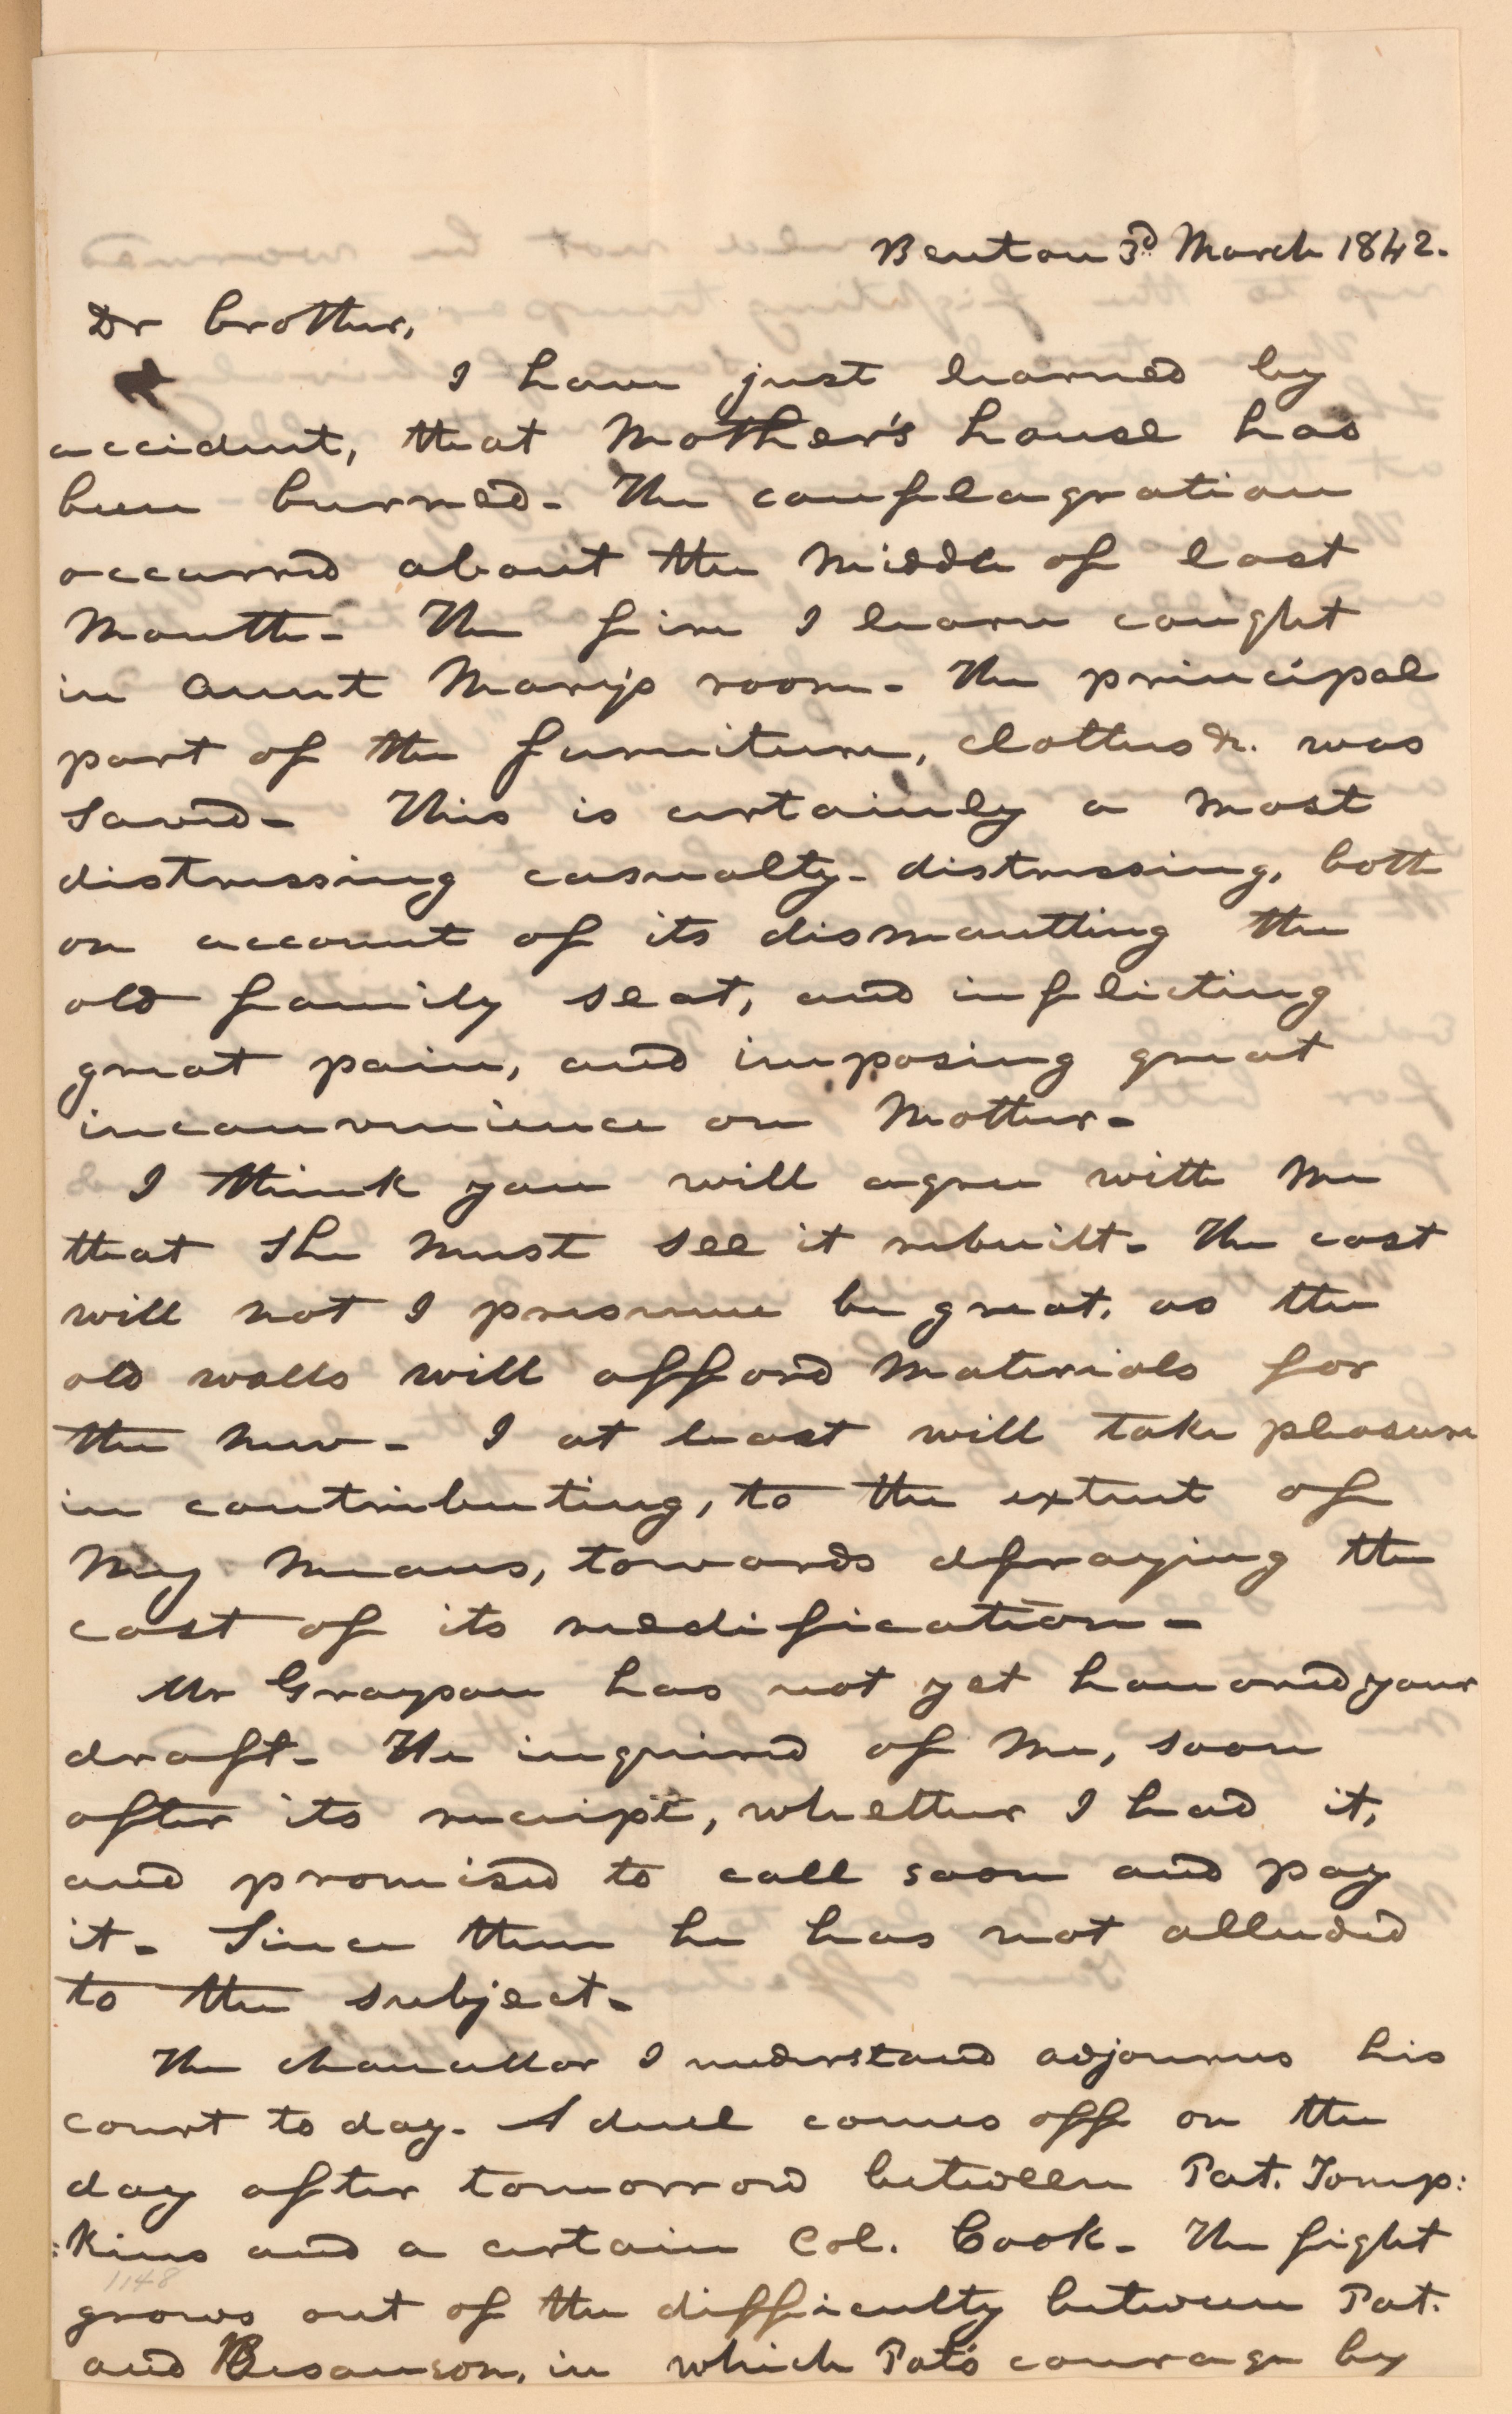 Benton 3d March 1842.
Dr brother,
I have just learned by
accident, that Mother's house has
been burned - The conflagration
occurred about the middle of last
Month - The fire I learn caught
in Aunt Mary's room - The principal
part of the furniture, clothes &c. was
saved - This is certainly a most
distressing casualty - distressing, both
on account of its dismantling the
old family seat, and inflicting
great pain, and imposing great
inconvenience on Mother -
I think you will agree with me
that she must see it rebuilt - The cost
will not I presume be great, as the
old walls will afford materials for
the new - I at least will take pleasure
in contributing, to the extent of
my means, towards defraying the
cost of its reedification -
Mr Grayson has not yet honored your
draft - He inquired of me, soon
after its receipt, whether I had it,
and promised to call soon and pay
it - Since then he has not alluded
to the subject -
The chancellor I understand adjourns his
court to day. A duel comes off on the
day after tomorrow between Pat. Tomp:
:kins and a certain Col. Cook - The fight
1148
grows out of the difficulty between Pat.
and Besancon, in which Pat's courage by